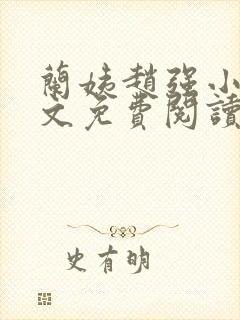 蘭姨趙強小
文免費閱讀
史有明